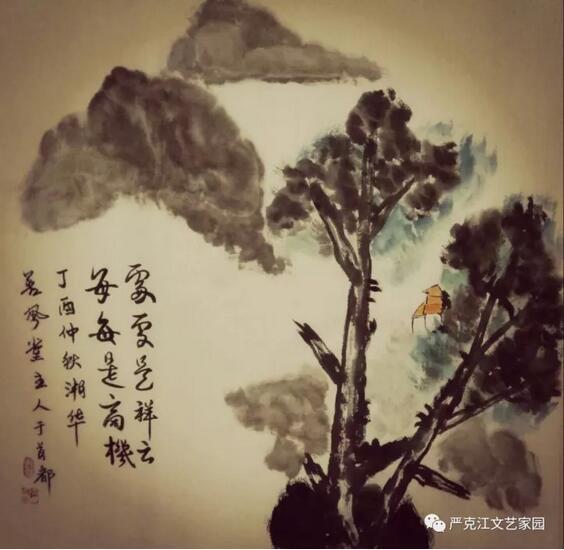 處處是祥云
每每是商機
丁酉仲秋湘华
堂主人于首都
严克江文艺家园